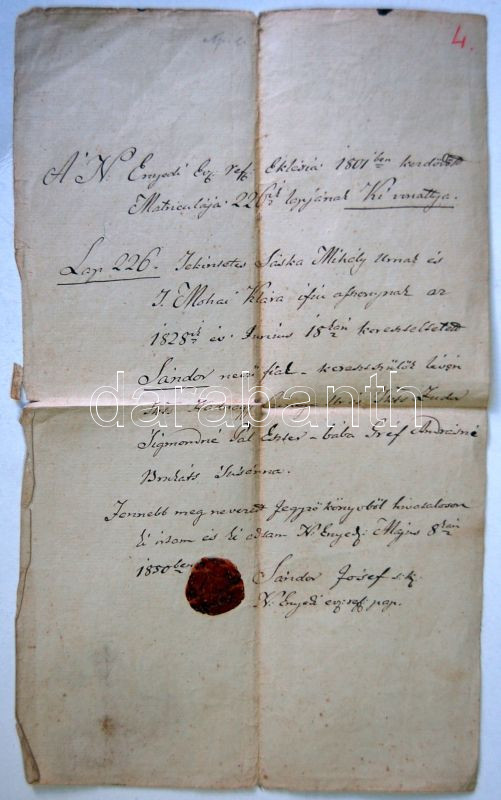 4.
A' N. Enyedi Ev. ref. Eklésia 1801ben kezdődött
Matriculája 226ik lapjának Ki vonattya.
Lap 226. Tekintetes Sáska Mihály Urnak és
T. Mohai Klára ifiu aszszonynak az
1828ik év Junius 18kán kereszteltetett
Sándor nevű fiok - keresztszülők lévén
darabanth
Sigmondné Pál Eszter - bába Gréf Andrásné
Susánna.
Fennebb meg nevezett Jegyző könyvből hivatalosan
ki irtam és ki adtam N. Enyedt Május 8kán
1850ben
Sándor József s.k.
N. Enyedi ev. ref. pap.